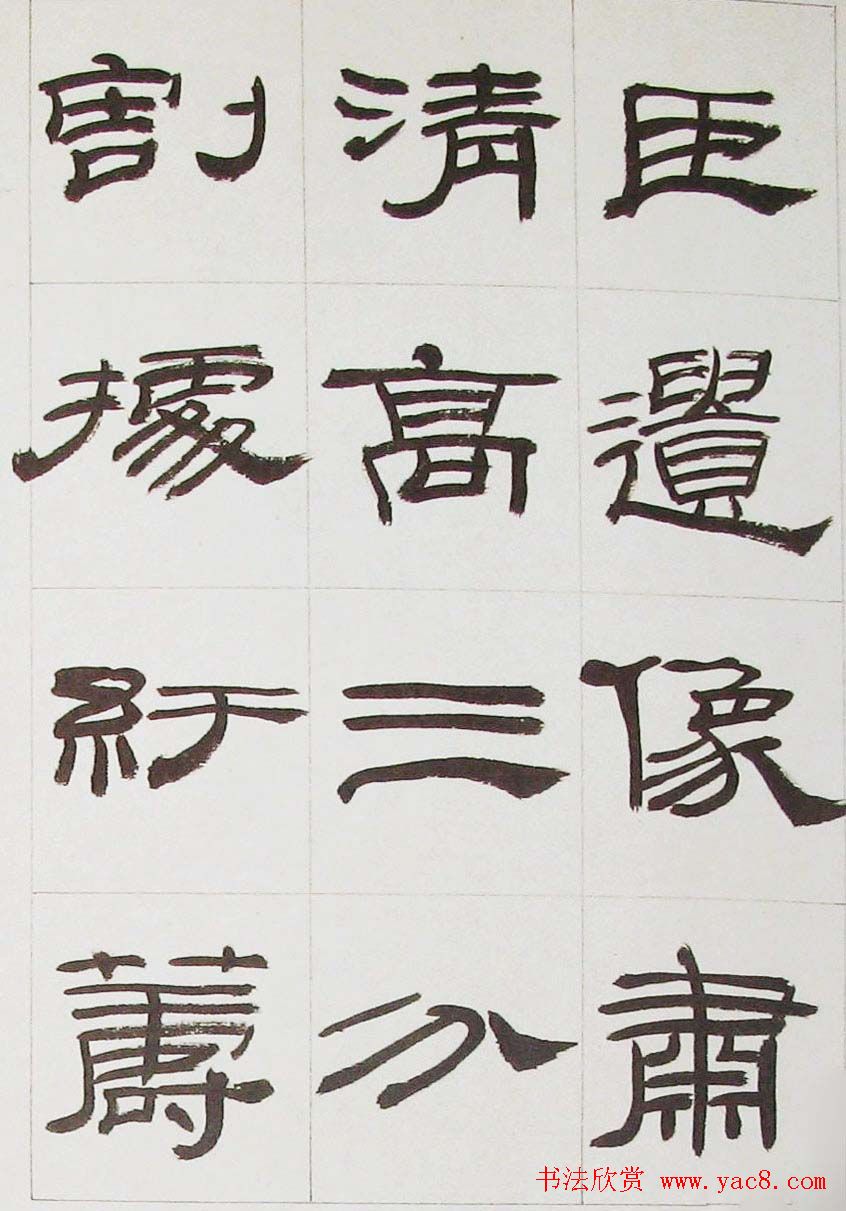 臣遺像肅
清高三分
割據紆薵
书法欣赏 www.yac8.com